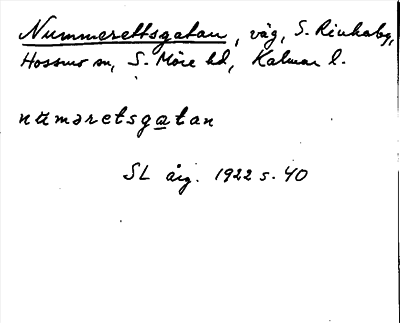 Nummerettsgatan, väg, S. Rinkaby,
Hossmo sn, S. Möre hd, Kalmar l.
numəretsgatan
SL årg. 1922 s. 40